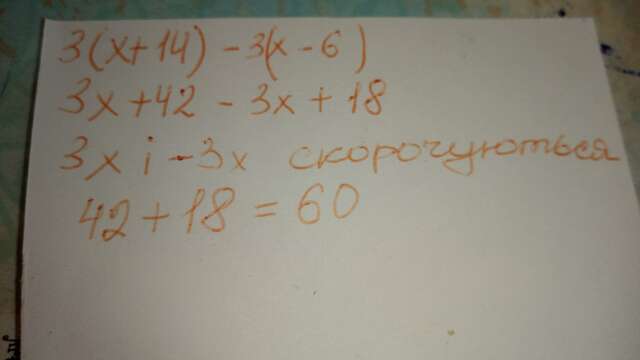 3(x+14) - 3(x - 6)
3x + 42 - 3x + 18
3x і -3x скорочуються
42 + 18 = 60